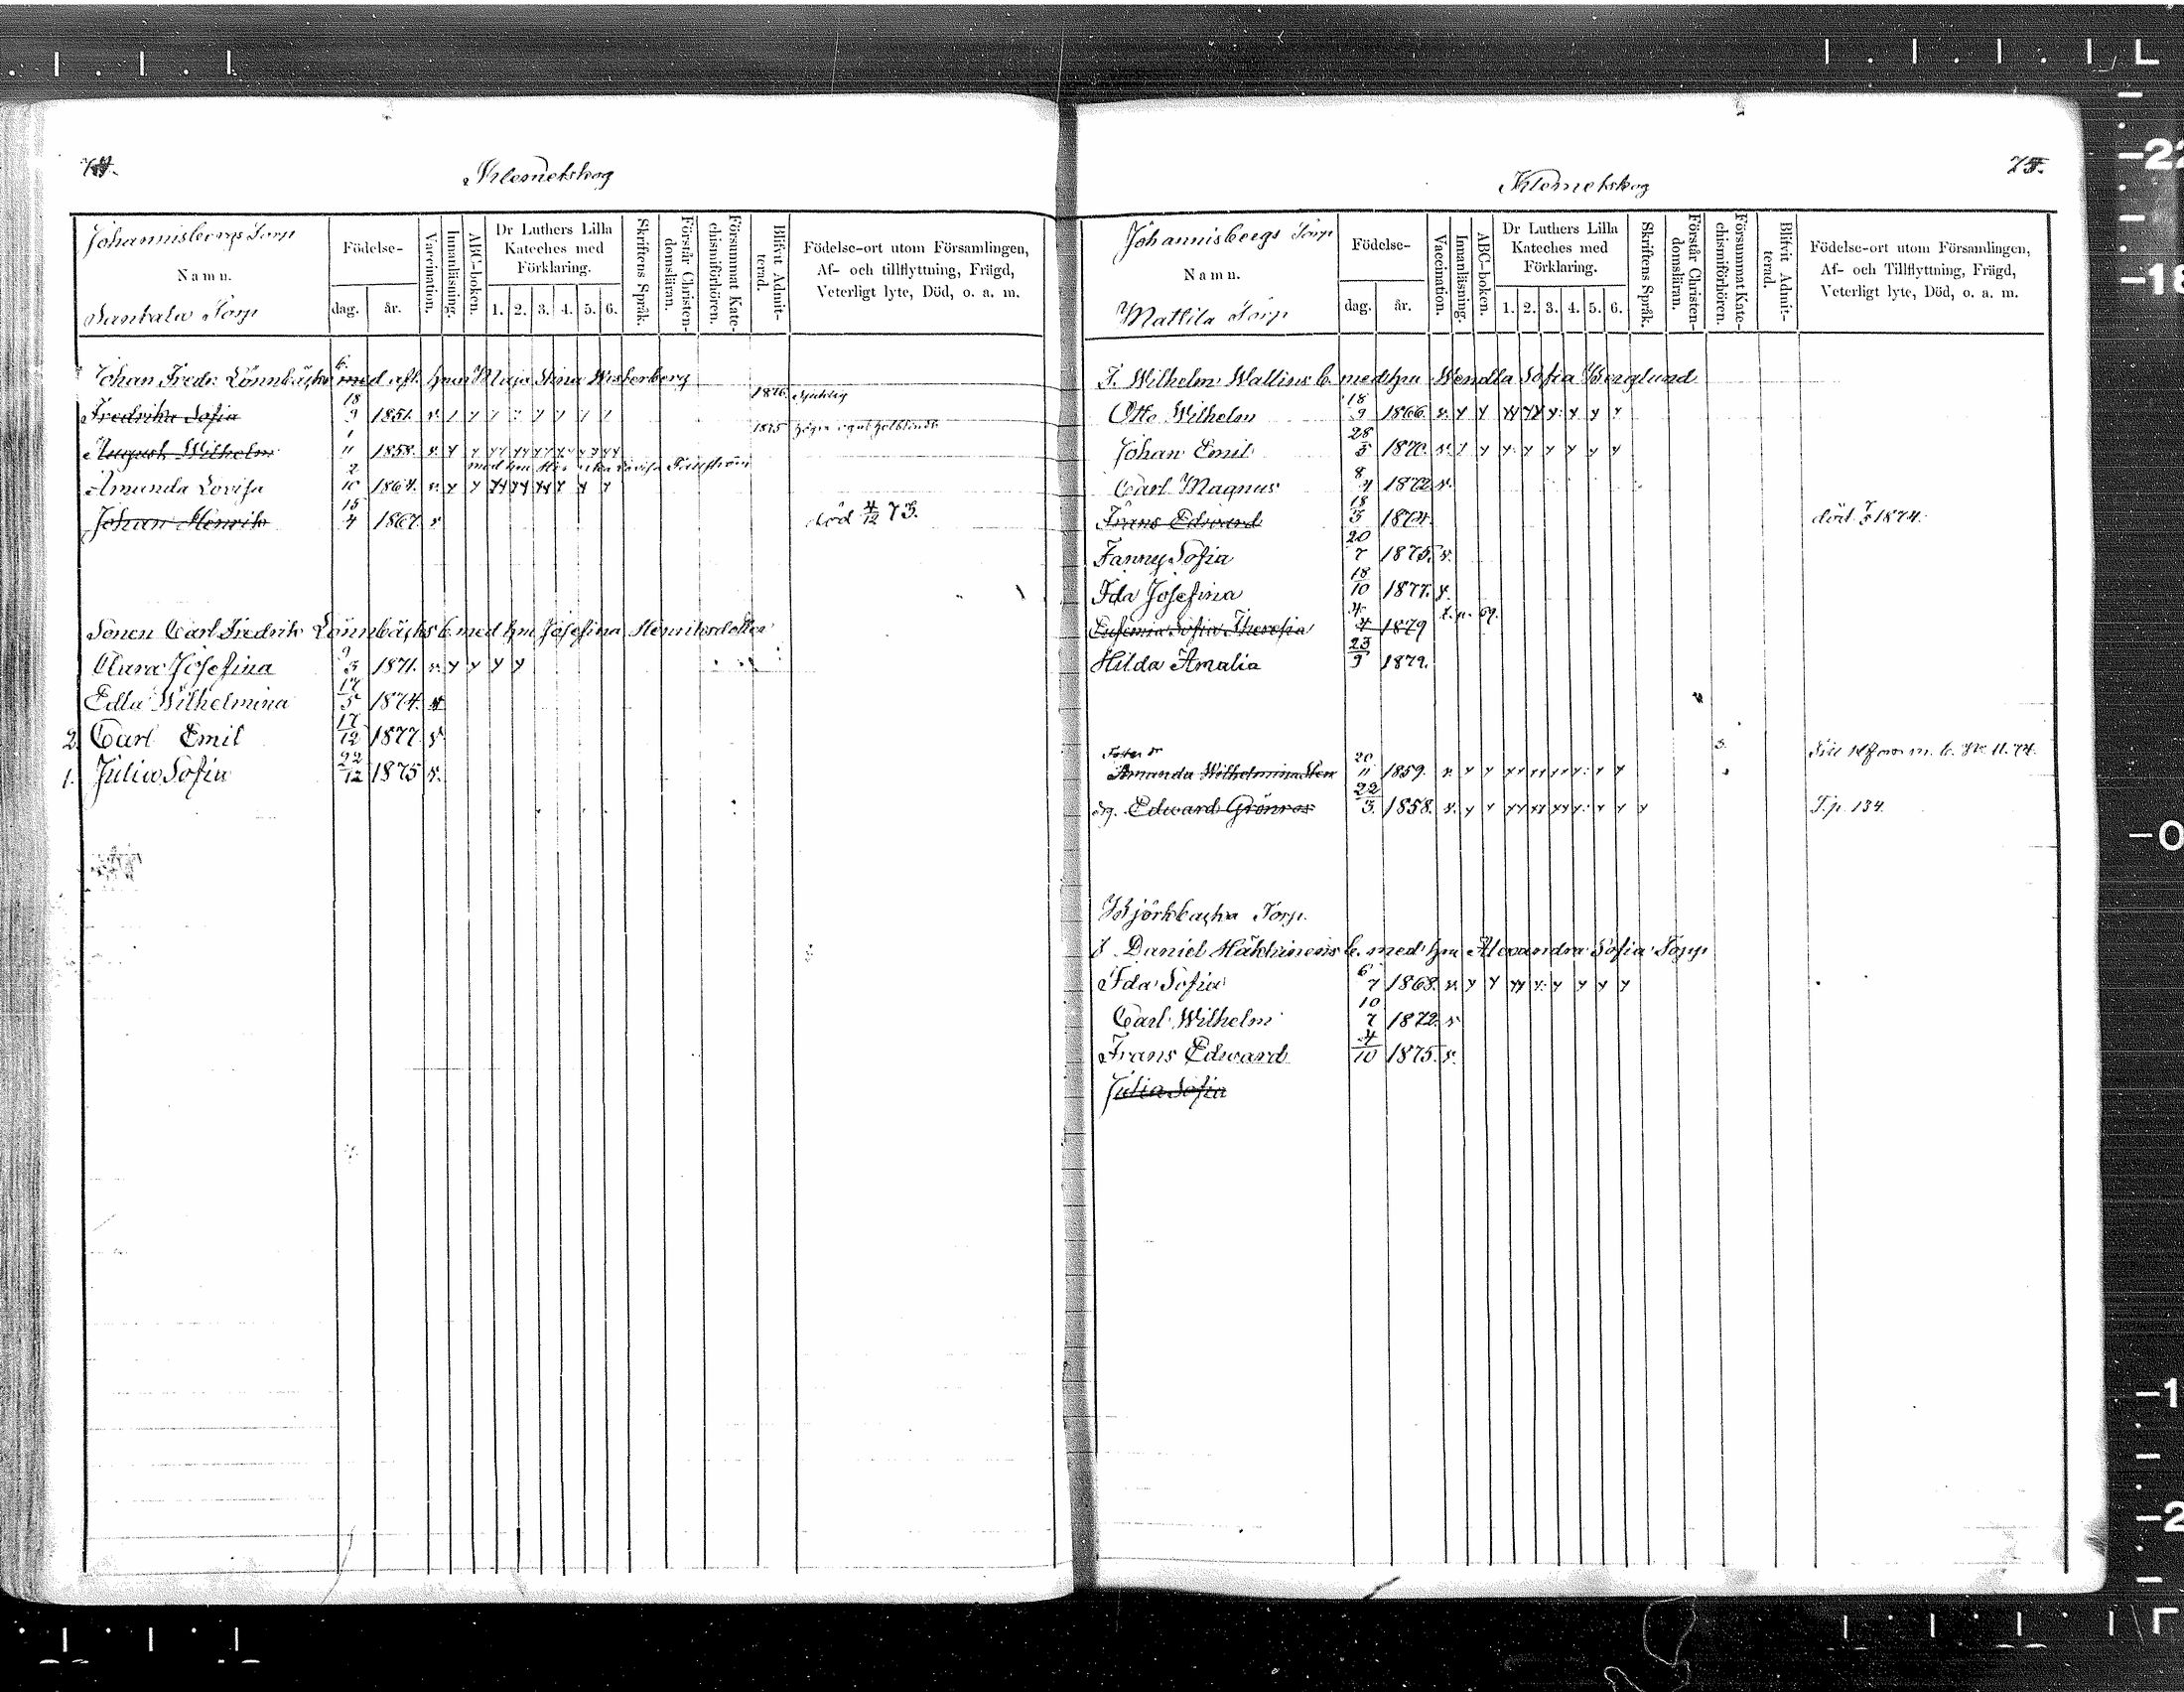 74.
Klemetskog
Johannisbergs Torp
Namn.
Santala Torp
Födelse-
dag. år.
Vaccination.
Innanläsning.
ABC-boken.
Dr Luthers Lilla
Kateches med
Förklaring.
1. 2. 3. 4. 5. 6.
Skriftens Språk.
Förstår Christen-
domsläran.
Försummat Kate-
chismiförhören.
Blifvit Admit-
terad.
Födelse-ort utom Församlingen,
Af- och tillflyttning, Frägd,
Veterligt lyte, Död, o. a. m.
Johan Fredr. Lönnbäcks b. med afl. hnu Maja Stina Westerberg
Fredrika Sofia 18/9 1851. v. 1876. sjuklig
August Wilhelm 1/11 1858. v. 1875
Amanda Lovisa 2/10 1864. v.
Johan Henrik 15/4 1867. v död 4/12 73.
Sonen Carl Fredrik Lönnbäcks b. med hnu Josefina Henriksdotter
Clara Josefina 9/3 1871. v. y y y y
Edla Wilhelmina 17/5 1874. v
2. Carl Emil 17/12 1877. v.
1. Julia Sofia 22/12 1875 v.
75.
Klemetskog
Johannisbergs Torp
Namn.
Mattila Torp
Födelse-
dag. år.
Vaccination.
Innanläsning.
ABC-boken.
Dr Luthers Lilla
Kateches med
Förklaring.
1. 2. 3. 4. 5. 6.
Skriftens Språk.
Förstår Christen-
domsläran.
Försummat Kate-
chismiförhören.
Blifvit Admit-
terad.
Födelse-ort utom Församlingen,
Af- och Tillflyttning, Frägd,
Veterligt lyte, Död, o. a. m.
T. Wilhelm Wallins b. med hnu Wendla Sofia Berglund
Otto Wilhelm 18/9 1866. v.
Johan Emil 28/5 1870. v.
Carl Magnus 8/4 1872 v.
Frans Edvard 18/3 1874. död 1874.
Fanny Sofia 20/7 1875. v.
Ida Josefina 18/10 1877. v.
Eufemia Sofia Theresia 4/4 1879 t. p. 69.
Hilda Amalia 23/9 1879.
Amanda Wilhelmina 20/11 1859. v.
dg. Edward Grönroos 22/3. 1858. v. T. p. 134.
Björkbacka Torp.
T Daniel Häkkinens b. med hnu Alexandra Sofia Topp
Ida Sofia 6/7 1868. v.
Carl Wilhelm 10/7 1872. v
Frans Edward 4/10 1875. v.
Julia Sofia